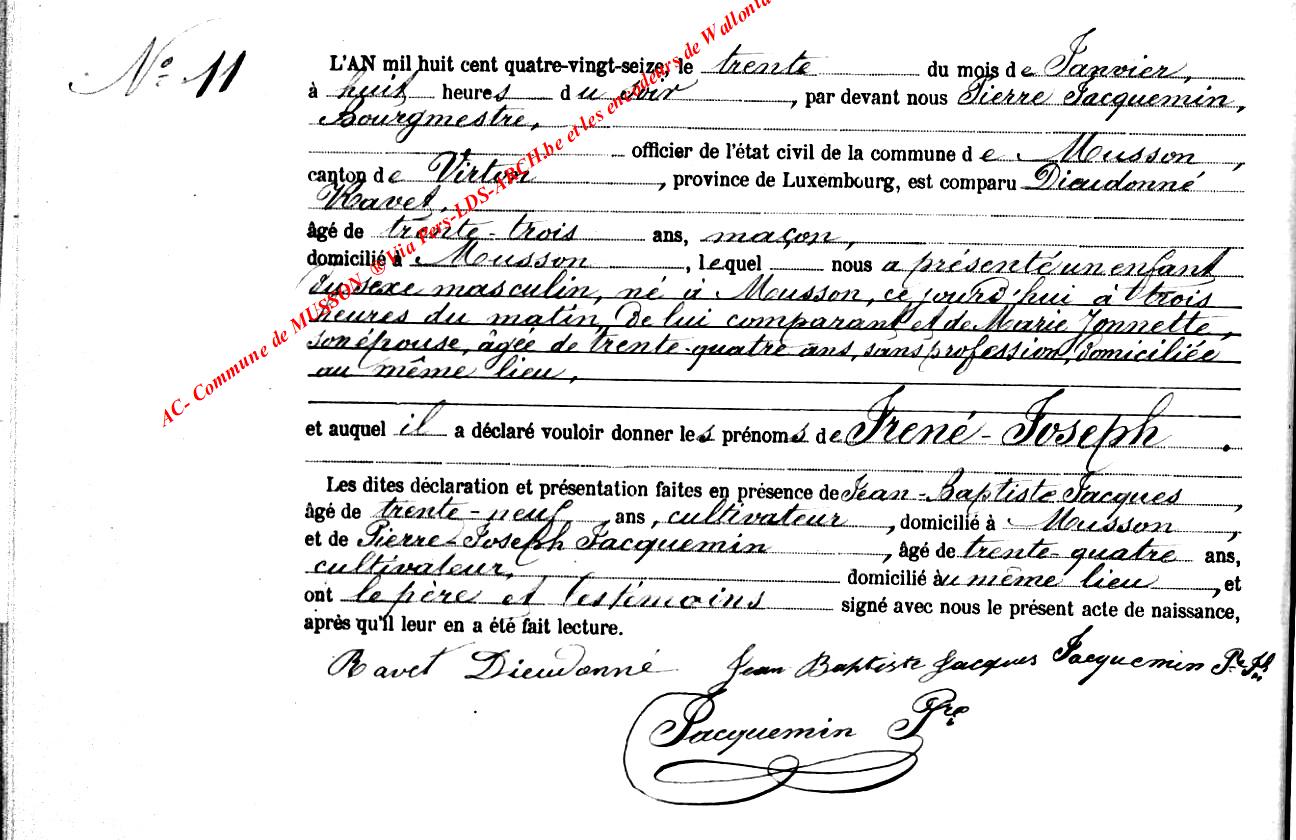 N° 11
L'AN mil huit cent quatre-vingt-seize, le trente du mois de Janvier,
à huit heures du soir, par devant nous Pierre Jacquemin,
Bourgmestre,
officier de l'état civil de la commune de Musson,
canton de Virton, province de Luxembourg, est comparu Dieudonné
Ravet,
âgé de trente-trois ans, maçon,
domicilié à Musson, lequel nous a présenté un enfant
du sexe masculin, né à Musson, ce jourd'hui à trois
heures du matin, de lui comparant et de Marie Jonnette,
son épouse, âgée de trente-quatre ans, sans profession, domiciliée
au même lieu,
et auquel il a déclaré vouloir donner les prénoms de Irené-Joseph.
Les dites déclaration et présentation faites en présence de Jean-Baptiste Jacques
âgé de trente-neuf ans, cultivateur, domicilié à Musson,
et de Pierre-Joseph Jacquemin, âgé de trente-quatre ans,
cultivateur, domicilié au même lieu, et
ont le père et les témoins signé avec nous le présent acte de naissance,
après qu'il leur en a été fait lecture.
Ravet Dieudonné Jean Baptiste Jacques Jacquemin Pre Jh
Jacquemin Pre
AC- Commune de MUSSON ® Via Pers-LDS-ARCH.be et les encodeurs de Wallonie